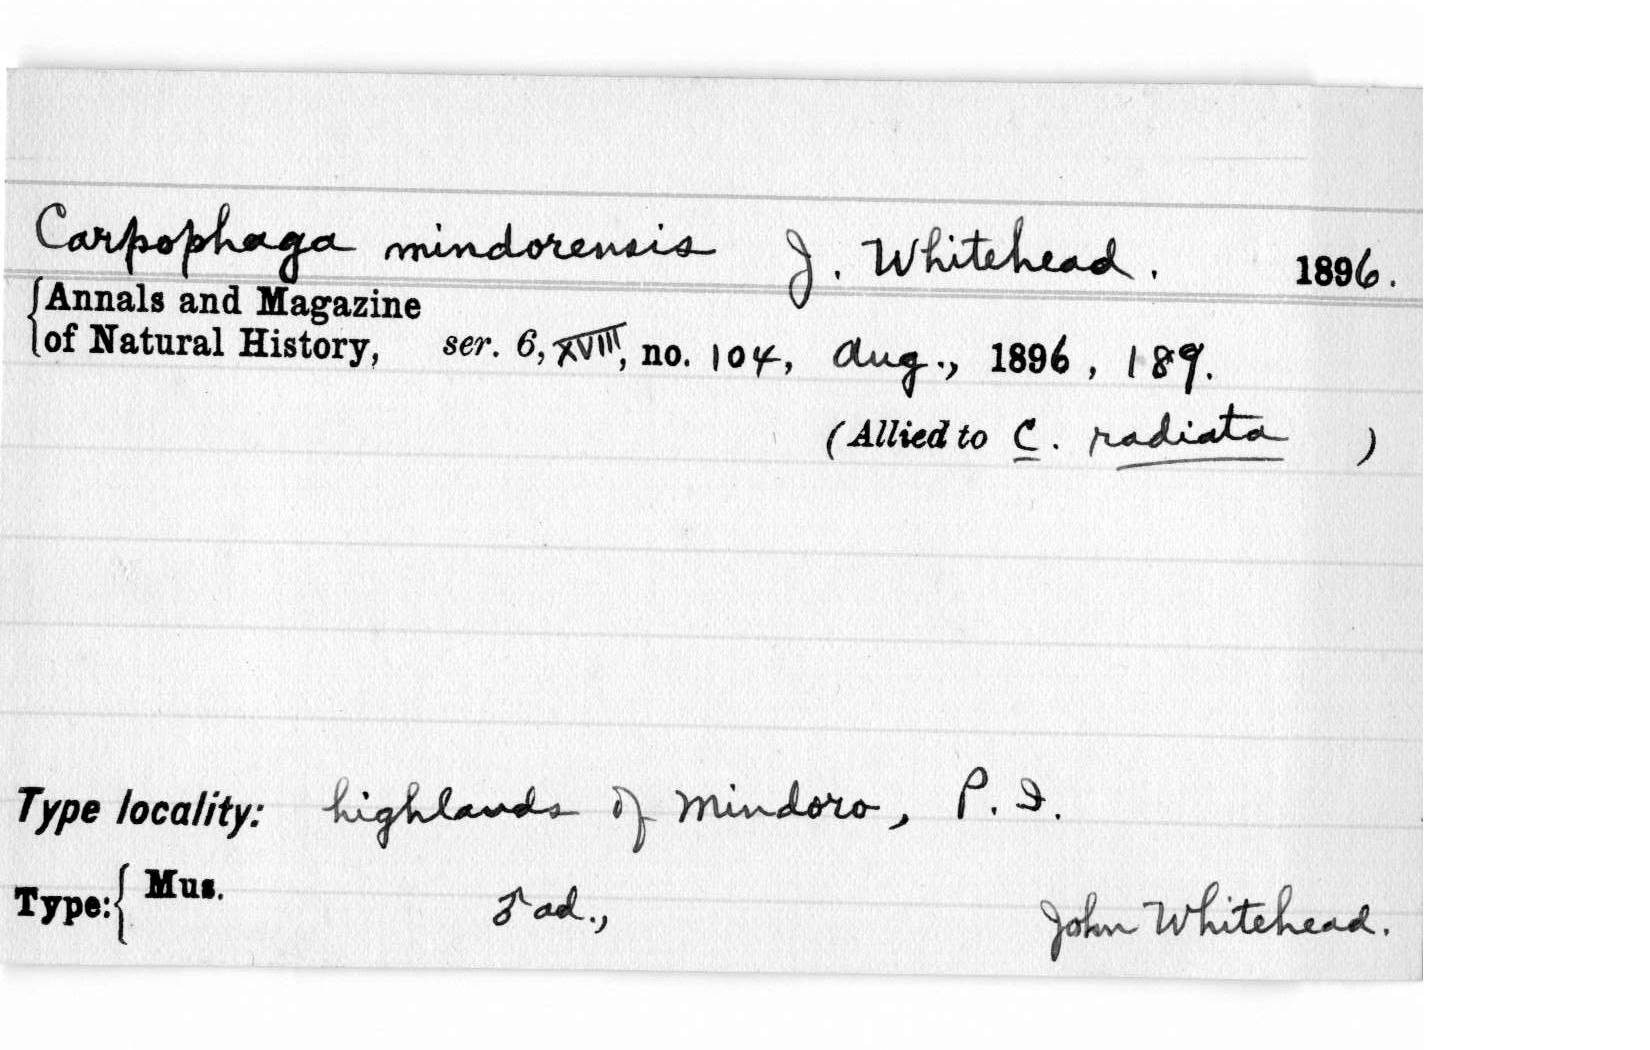 Carpophaga mindorensis J. Whitehead. 1896.
Annals and Magazine
of Natural History, ser. 6, XVIII, no. 104, Aug., 1896, 189.
(Allied to C. radiata )
Type locality: highlands of Mindoro, P. I.
Type: Mus. ♂ ad., John Whitehead.